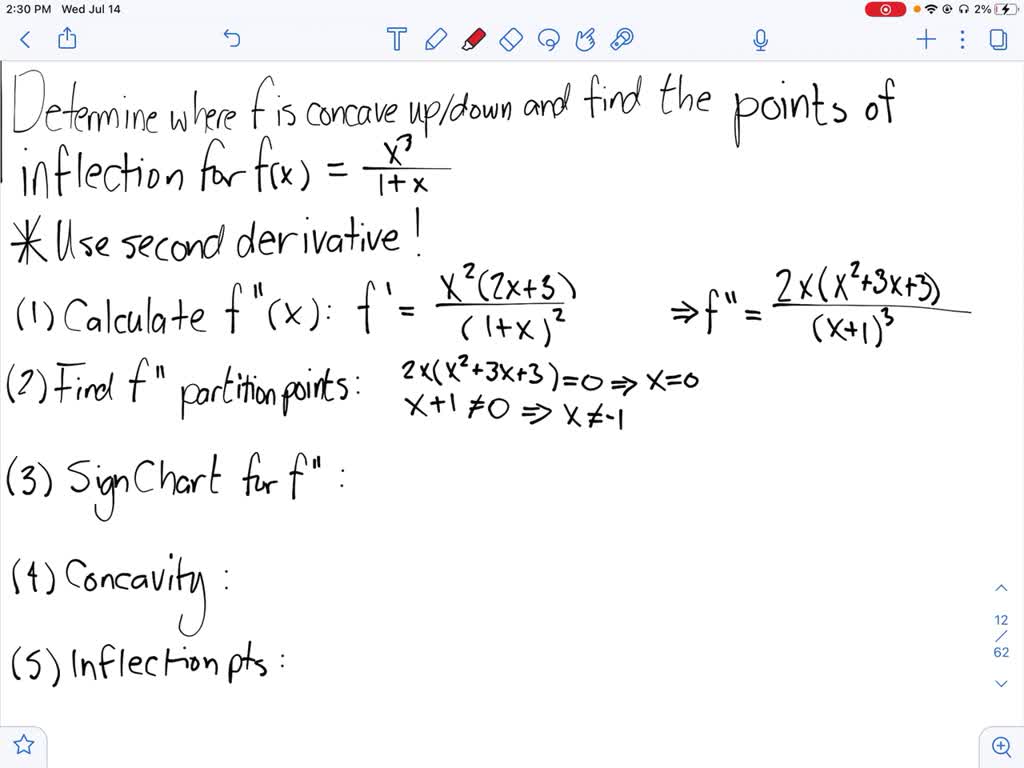 2:30 PM Wed Jul 14 2%
Determine where f is concave up/down and find the points of
inflection for f(x) = x³/(1+x)
* Use second derivative!
(1) Calculate f"(x): f' = x²(2x+3)/(1+x)² ⇒ f" = 2x(x²+3x+3)/(x+1)³
(2) Find f" partition points: 2x(x²+3x+3)=0 ⇒ x=0
x+1≠0 ⇒ x≠-1
(3) Sign Chart for f" :
(4) Concavity :
(5) Inflection pts :
12
/
62